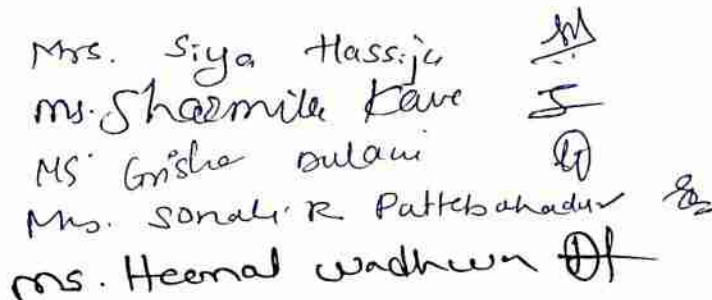 Mrs. Siya Hassija
Ms. Sharmila Kave
MS. Grisha Dulani
Mrs. Sonali R Pattebahadur
Ms. Heemal wadhwa